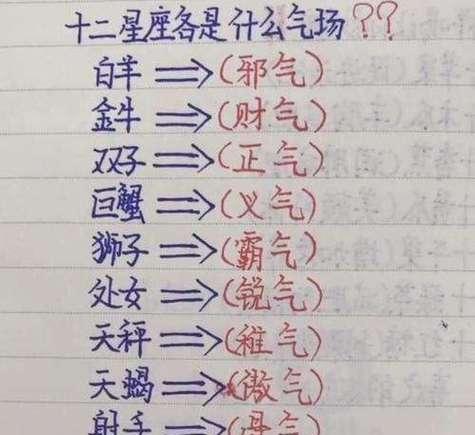 十二星座各是什么气场??
白羊⇒(邪气)
金牛⇒(财气)
双子⇒(正气)
巨蟹⇒(义气)
狮子⇒(霸气)
处女⇒(锐气)
天秤⇒(稚气)
天蝎⇒(傲气)
射手⇒(勇气)